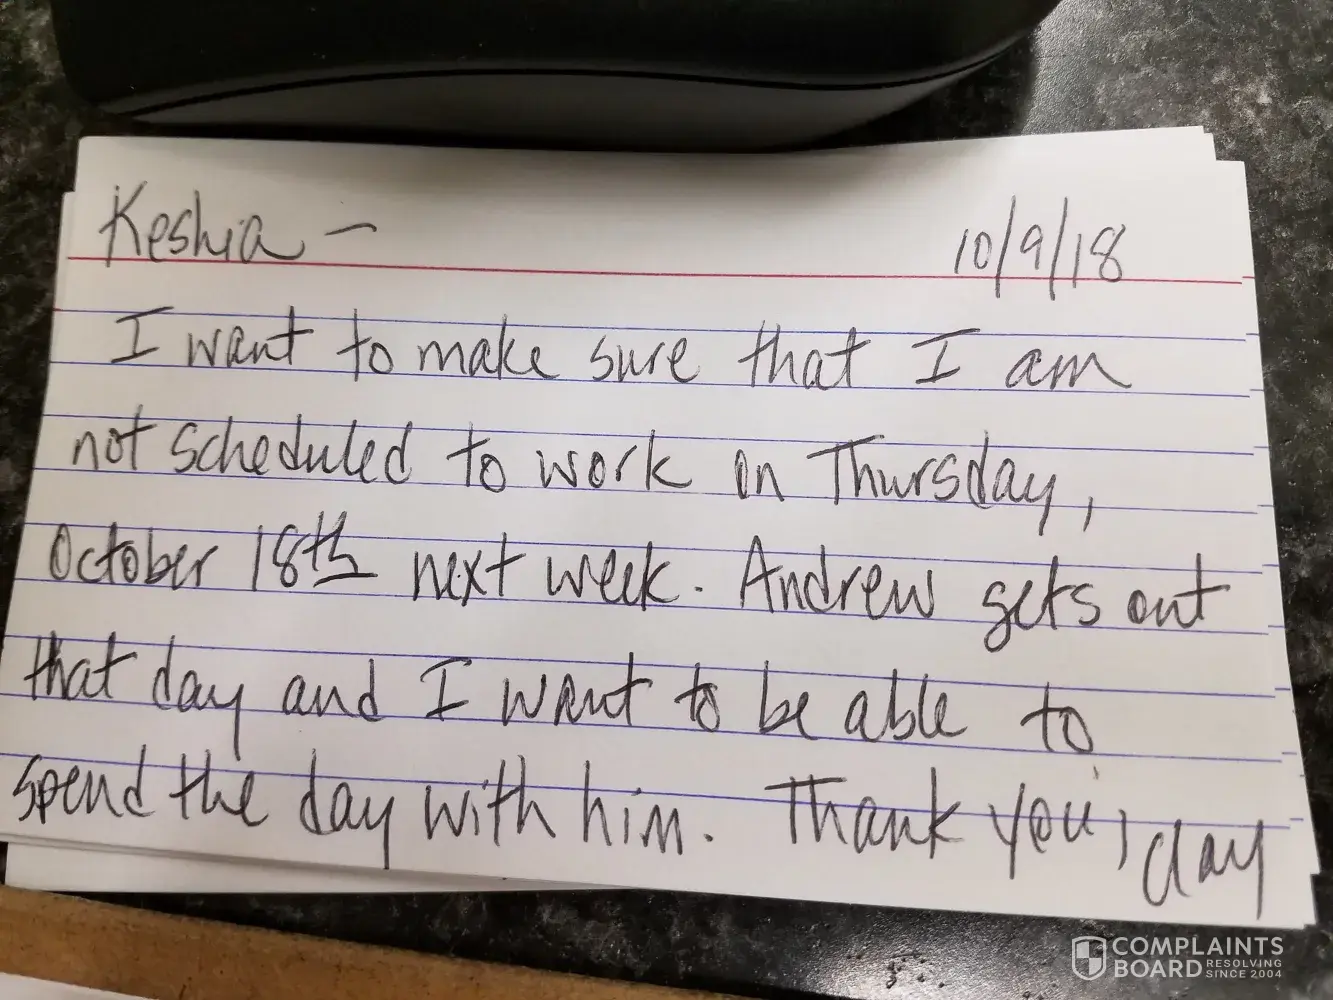 Keshia — 10/9/18
I want to make sure that I am
not scheduled to work on Thursday,
October 18th next week. Andrew gets out
that day and I want to be able to
spend the day with him. Thank you, day
COMPLAINTS
BOARD RESOLVING SINCE 2004